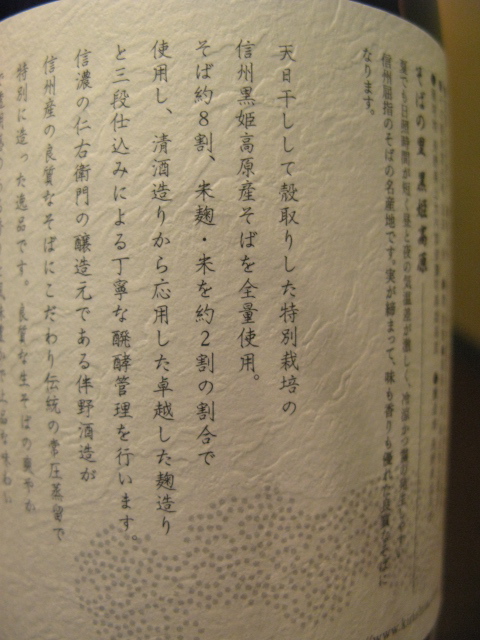 そばの里 黒姫高原
信州屈指のそばの名産地です。実が締まって、味も香りも優れた良質なそばに
なります。
天日干しして殻取りした特別栽培の
信州黒姫高原産そばを全量使用。
そば約8割、米麹・米を約2割の割合で
使用し、清酒造りから応用した卓越した麹造り
と三段仕込みによる丁寧な醗酵管理を行います。
信濃の仁右衛門の醸造元である伴野酒造が
信州産の良質なそばにこだわり伝統の常圧蒸留で
特別に造った逸品です。良質な生そばの爽やか